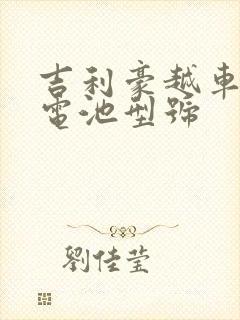 吉利豪越車
電池型號
劉佳莹